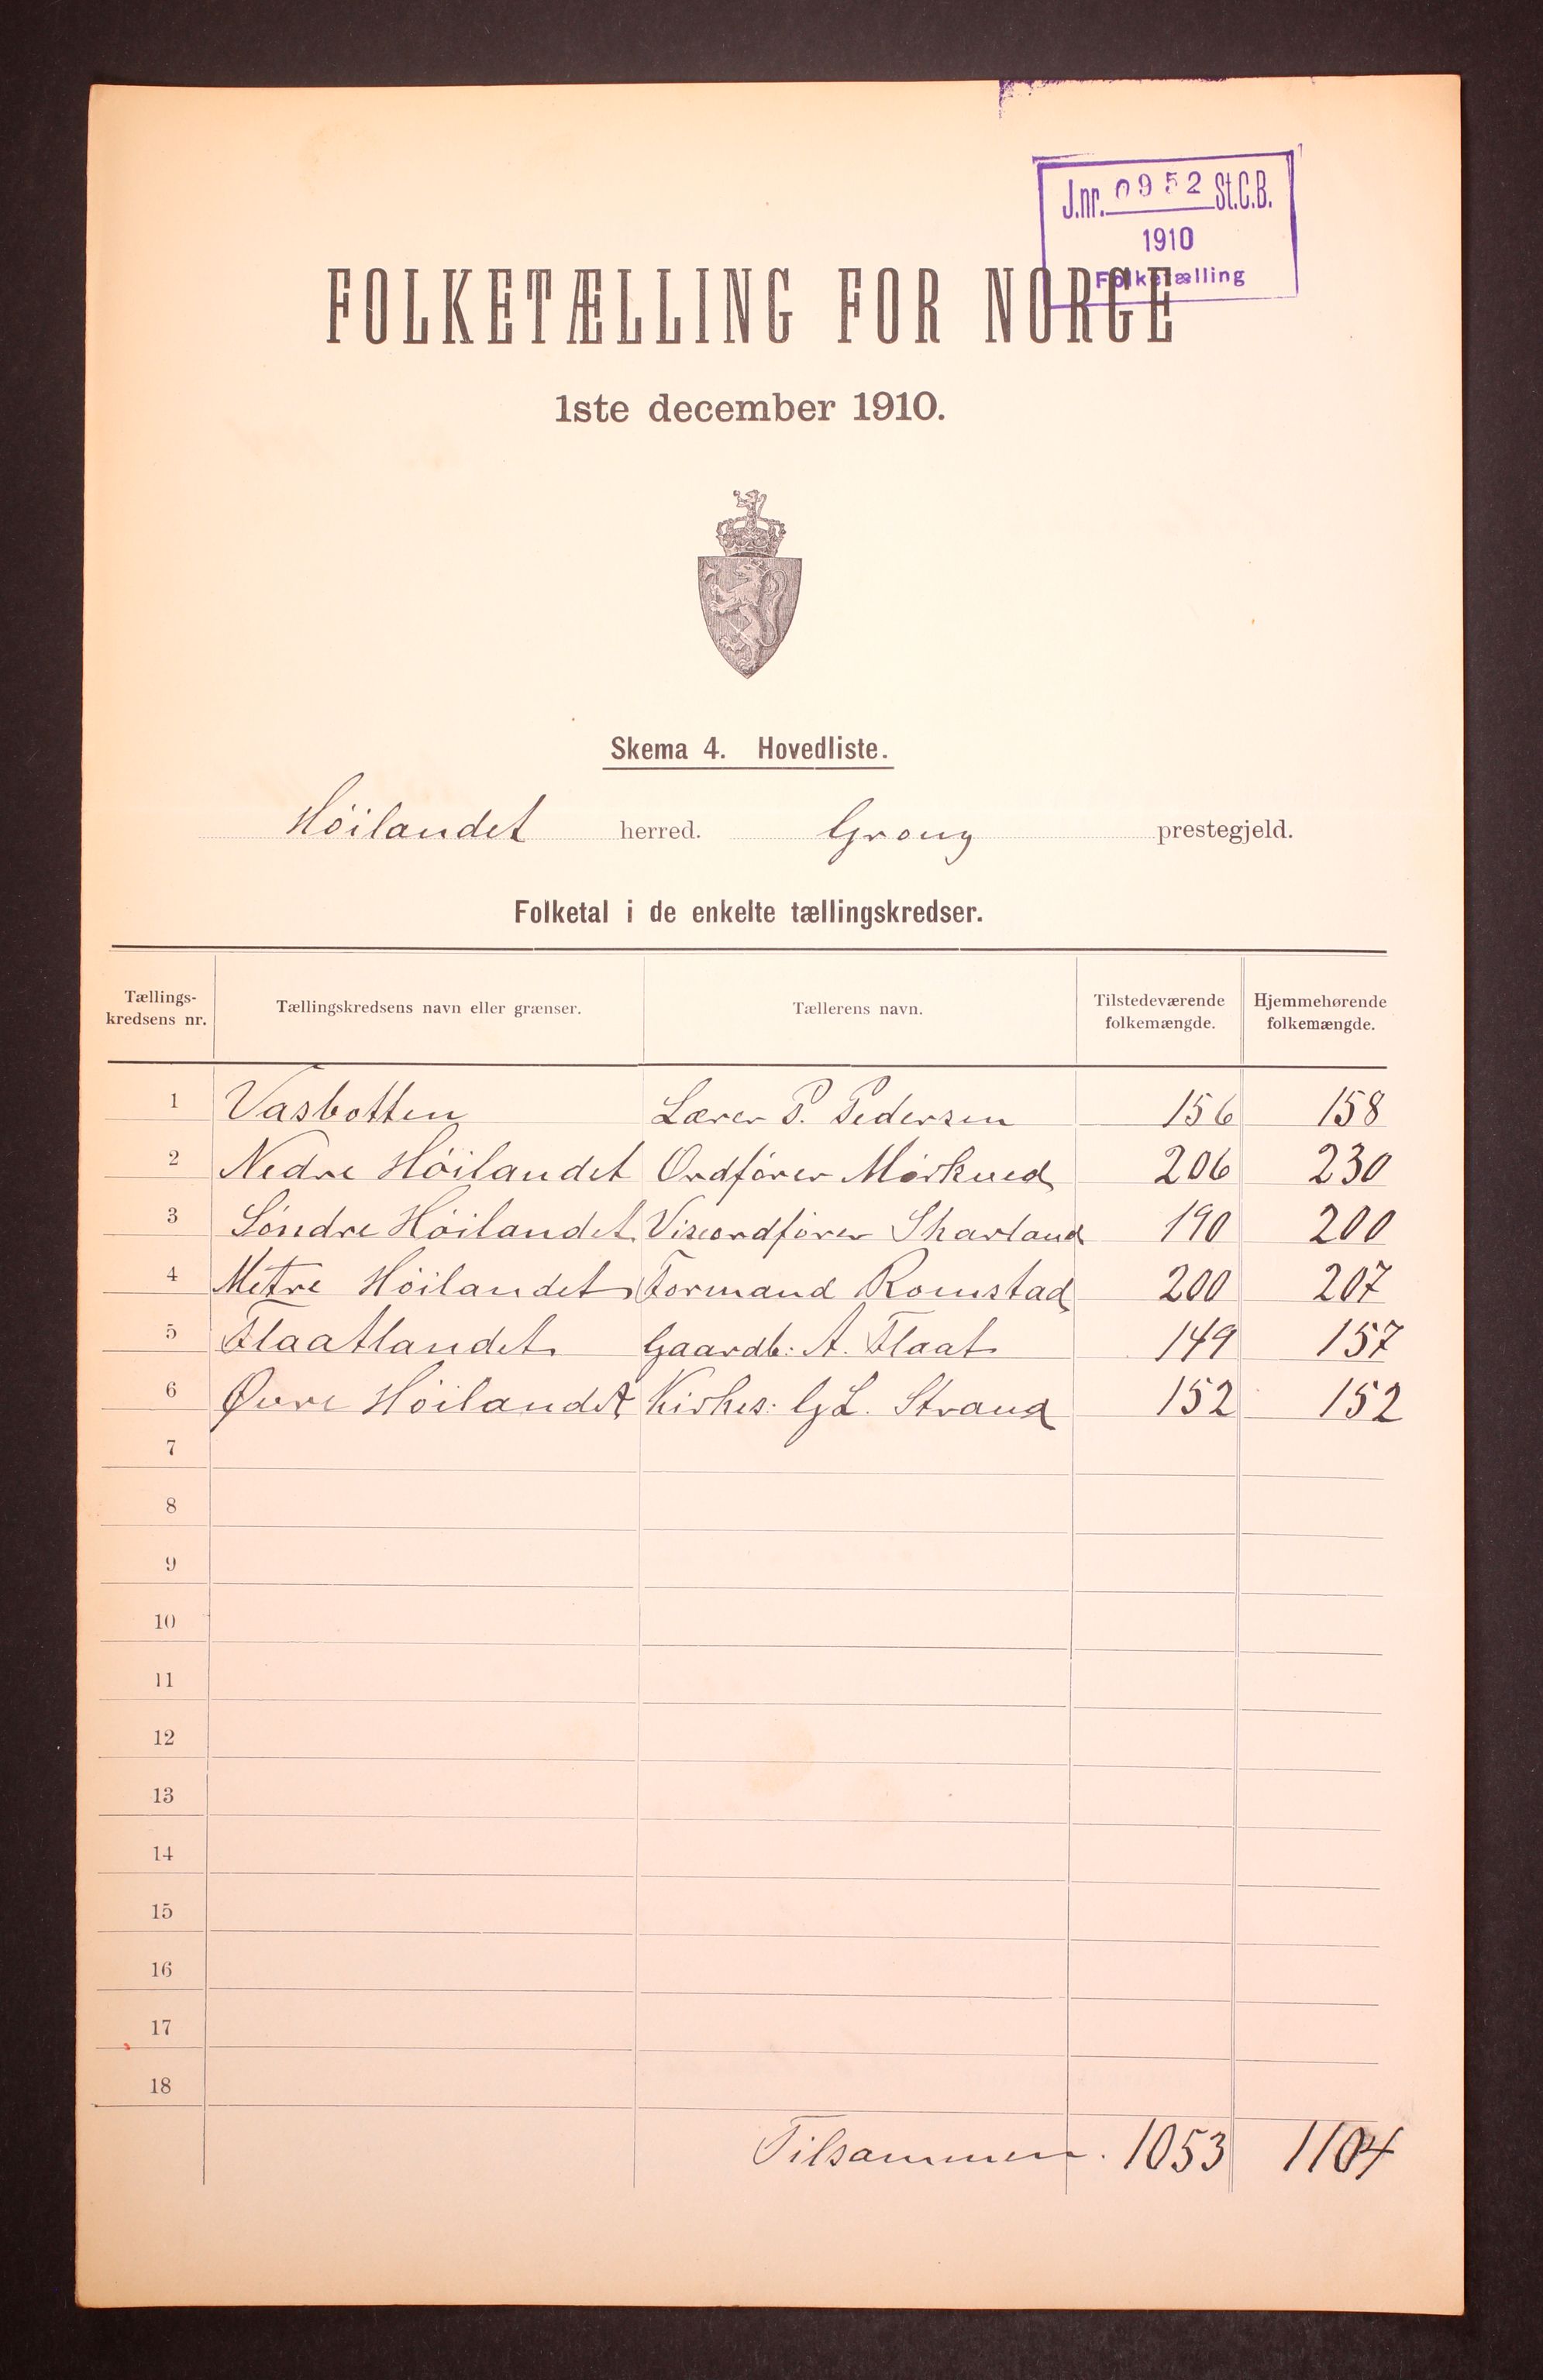 J.nr. 0952 St.C.B.
1910
Folketælling
FOLKETÆLLING FOR NORGE
1ste december 1910.
Skema 4. Hovedliste.
Höilandet herred. Grong prestegjeld.
Folketal i de enkelte tællingskredser.
Tællings-kredsens nr. Tællingskredsens navn eller grænser. Tællerens navn. Tilstedeværende folkemængde. Hjemmehørende folkemængde.
1 Vasbotten Lærer P. Pedersen 156 158
2 Nedre Höilandet Ordfører Mörkved 206 230
3 Söndre Höilandet Viseordfører Skarland 190 200
4 Mitre Höilandet Formand Romstad 200 207
5 Flaatlandet Gaardb: A. Flaat 149 157
6 Øvre Höilandet Kirkes: G L. Strand 152 152
7
8
9
10
11
12
13
14
15
16
17
18
Tilsammen. 1053 1104